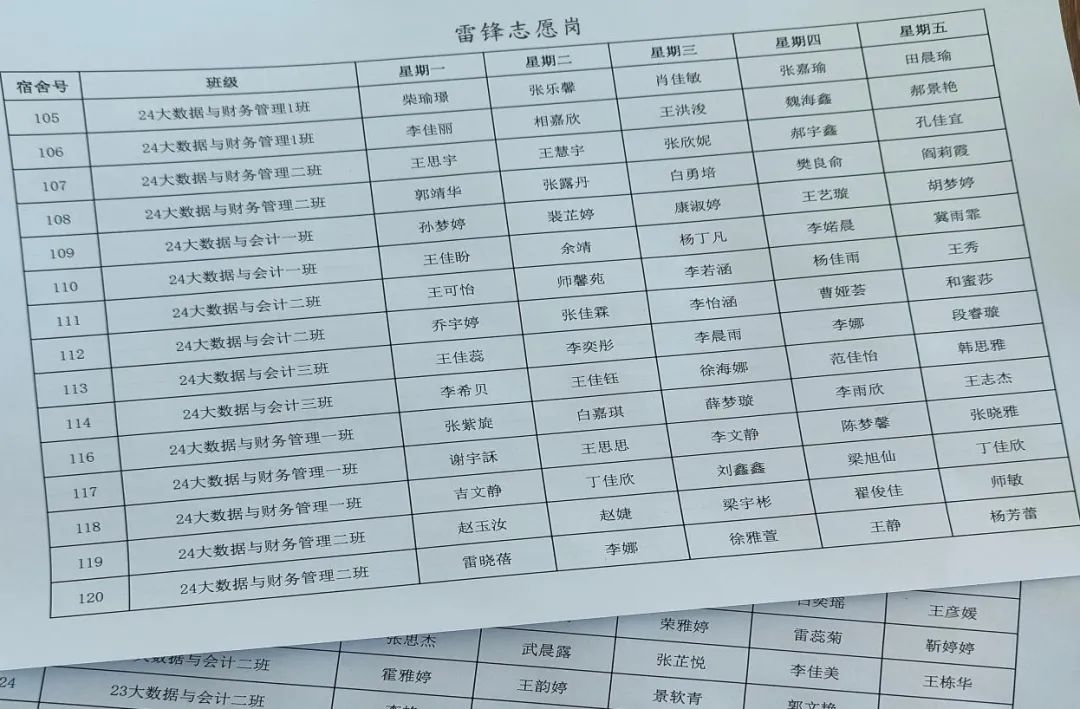 雷锋志愿岗
宿舍号 班级 星期一 星期二 星期三 星期四 星期五
105 24大数据与财务管理1班 柴瑜璟 张乐馨 肖佳敏 张嘉瑜 田晨瑜
106 24大数据与财务管理1班 李佳丽 相嘉欣 王洪浚 魏海鑫 郝景艳
107 24大数据与财务管理二班 王思宇 王慧宇 张欣妮 郝宇鑫 孔佳宜
108 24大数据与财务管理二班 郭靖华 张露丹 白勇培 樊良俞 阎莉霞
109 24大数据与会计一班 孙梦婷 裴芷婷 康淑婷 王艺璇 胡梦婷
110 24大数据与会计一班 王佳盼 余靖 杨丁凡 李婼晨 冀雨霏
111 24大数据与会计二班 王可怡 师馨苑 李若涵 杨佳雨 王秀
112 24大数据与会计二班 乔宇婷 张佳霖 李怡涵 曹娅荟 和蜜莎
113 24大数据与会计三班 王佳蕊 李奕彤 李晨雨 李娜 段睿璇
114 24大数据与会计三班 李希贝 王佳钰 徐海娜 范佳怡 韩思雅
116 24大数据与财务管理一班 张紫旋 白嘉琪 薛梦璇 李雨欣 王志杰
117 24大数据与财务管理一班 谢宇訸 王思思 李文静 陈梦馨 张晓雅
118 24大数据与财务管理一班 吉文静 丁佳欣 刘鑫鑫 梁旭仙 丁佳欣
119 24大数据与财务管理二班 赵玉汝 赵婕 梁宇彬 翟俊佳 师敏
120 24大数据与财务管理二班 雷晓蓓 李娜 徐雅萱 王静 杨芳蕾
奕瑶 王彦媛
张思杰 武晨露 荣雅婷 雷蕊菊 靳婷婷
大数据与会计二班 霍雅婷 王韵婷 张芷悦 李佳美 王栋华
24 23大数据与会计二班 景软青